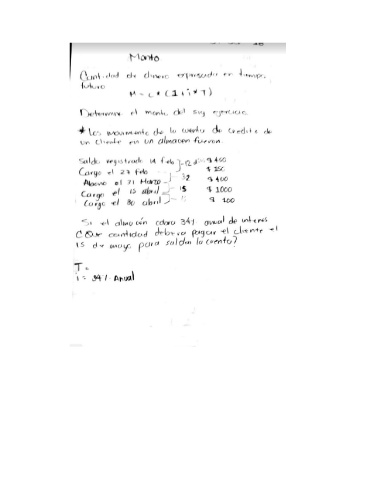 Monto
Cantidad de dinero expresada en tiempo
futuro
M = C * (1 + i * T)
Determine el monto del sig ejercicio
* Los movimiento de la cuenta de credito de
un cliente en un almacen fueron
Saldo registrado 14 feb $ 400
Cargo el 27 feb $ 250
Abono el 31 Marzo 32 $ 400
Cargo el 15 abril 15 $ 1000
Cargo el 30 abril $ 100
Si el almacén cobra 34% anual de interes
¿Que cantidad debera pagar el cliente el
15 de mayo para saldar la cuenta?
T =
i = 34% Anual